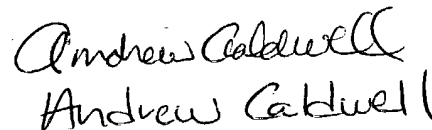 Andrew Caldwell
Andrew Caldwell